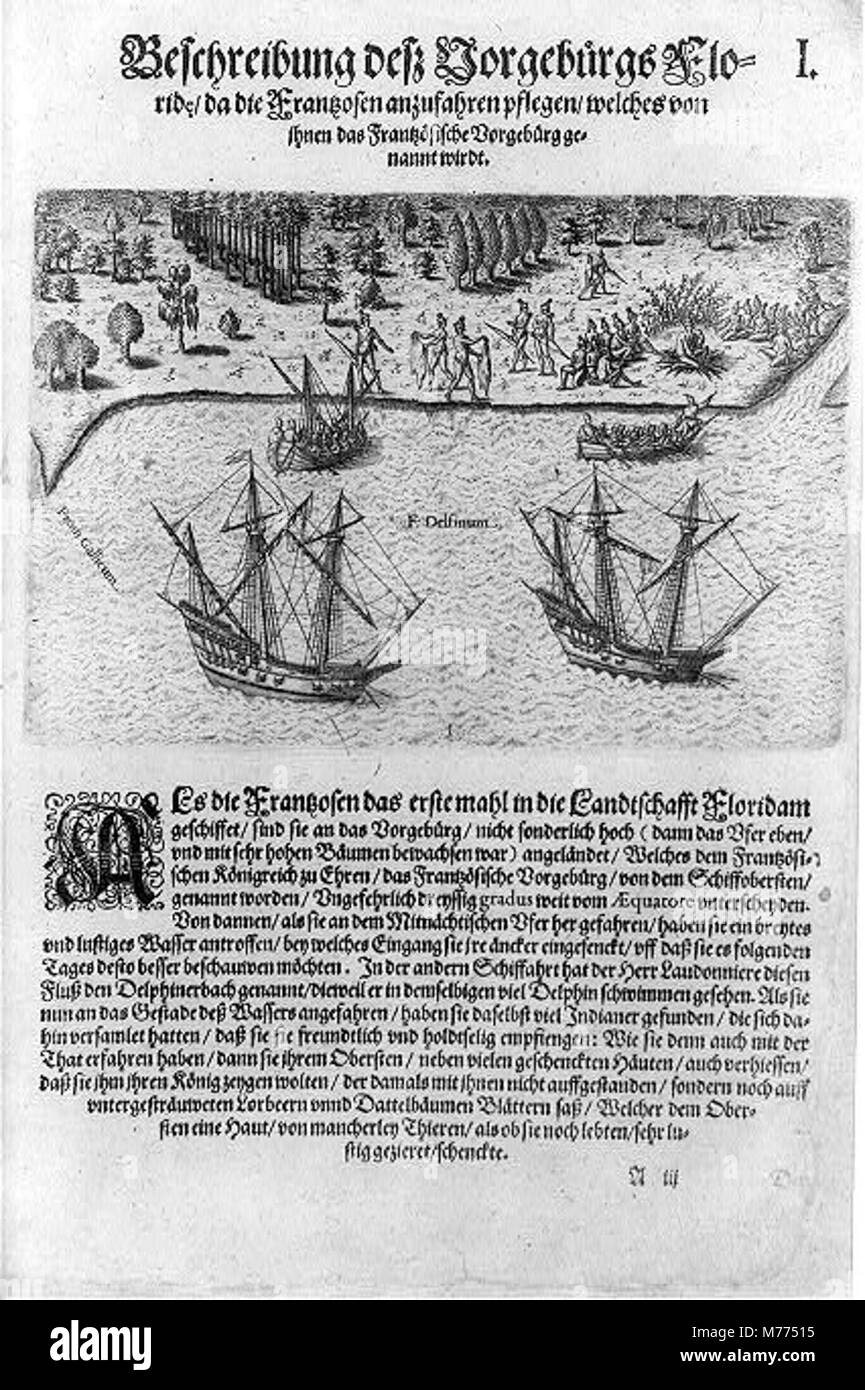 Beschreibung desz Vorgebürgs Flo- I.
ride/ da die Frantzosen anzufahren pflegen/ welches von
ihnen das Frantzösische Vorgebürg ge-
nannt wirdt.
F. Delfinum.
Promon Gallicum.
I
ALs die Frantzosen das erste mahl in die Landtschafft Floridam
geschiffet/ sind sie an das Vorgebürg/ nicht sonderlich hoch (dann das Vfer eben/
vnd mit sehr hohen Bäumen bewachsen war) angeländet/ Welches dem Frantzösi-
schen Königreich zu Ehren/ das Frantzösische Vorgebürg/ von dem Schiffobersten/
genannt worden/ Vngefehrlich dreyssig gradus weit vom Æquatore vnterscheyden.
Von dannen/ als sie an dem Mitnächtischen Vfer her gefahren/ haben sie ein breytes
vnd lustiges Wasser antroffen/ bey welches Eingang sie jre äncker eingesenckt/ vff daß sie es folgenden
Tages desto besser beschauwen möchten. In der andern Schiffahrt hat der Herr Laudonniere diesen
Fluß den Delphinerbach genannt/ dieweil er in demselbigen viel Delphin schwimmen gesehen. Als sie
nun an das Gestade deß Wassers angefahren/ haben sie daselbst viel Indianer gefunden/ die sich da-
hin versamlet hatten/ daß sie sie freundtlich vnd holdtselig empfiengen: Wie sie denn auch mit der
That erfahren haben/ dann sie jhrem Obersten/ neben vielen geschenckten Häuten/ auch verhiessen/
daß sie jhm jhren König zeygen wolten/ der damals mit jhnen nicht auffgestanden/ sondern noch auff
vntergesträuweten Lorbeern vnnd Dattelbäumen Blättern saß/ Welcher dem Ober-
sten eine Haut/ von mancherley Thieren/ als ob sie noch lebten/ sehr lu-
stig gezieret/ schenckte.
A iij
alamy
Image ID: M77515
www.alamy.com